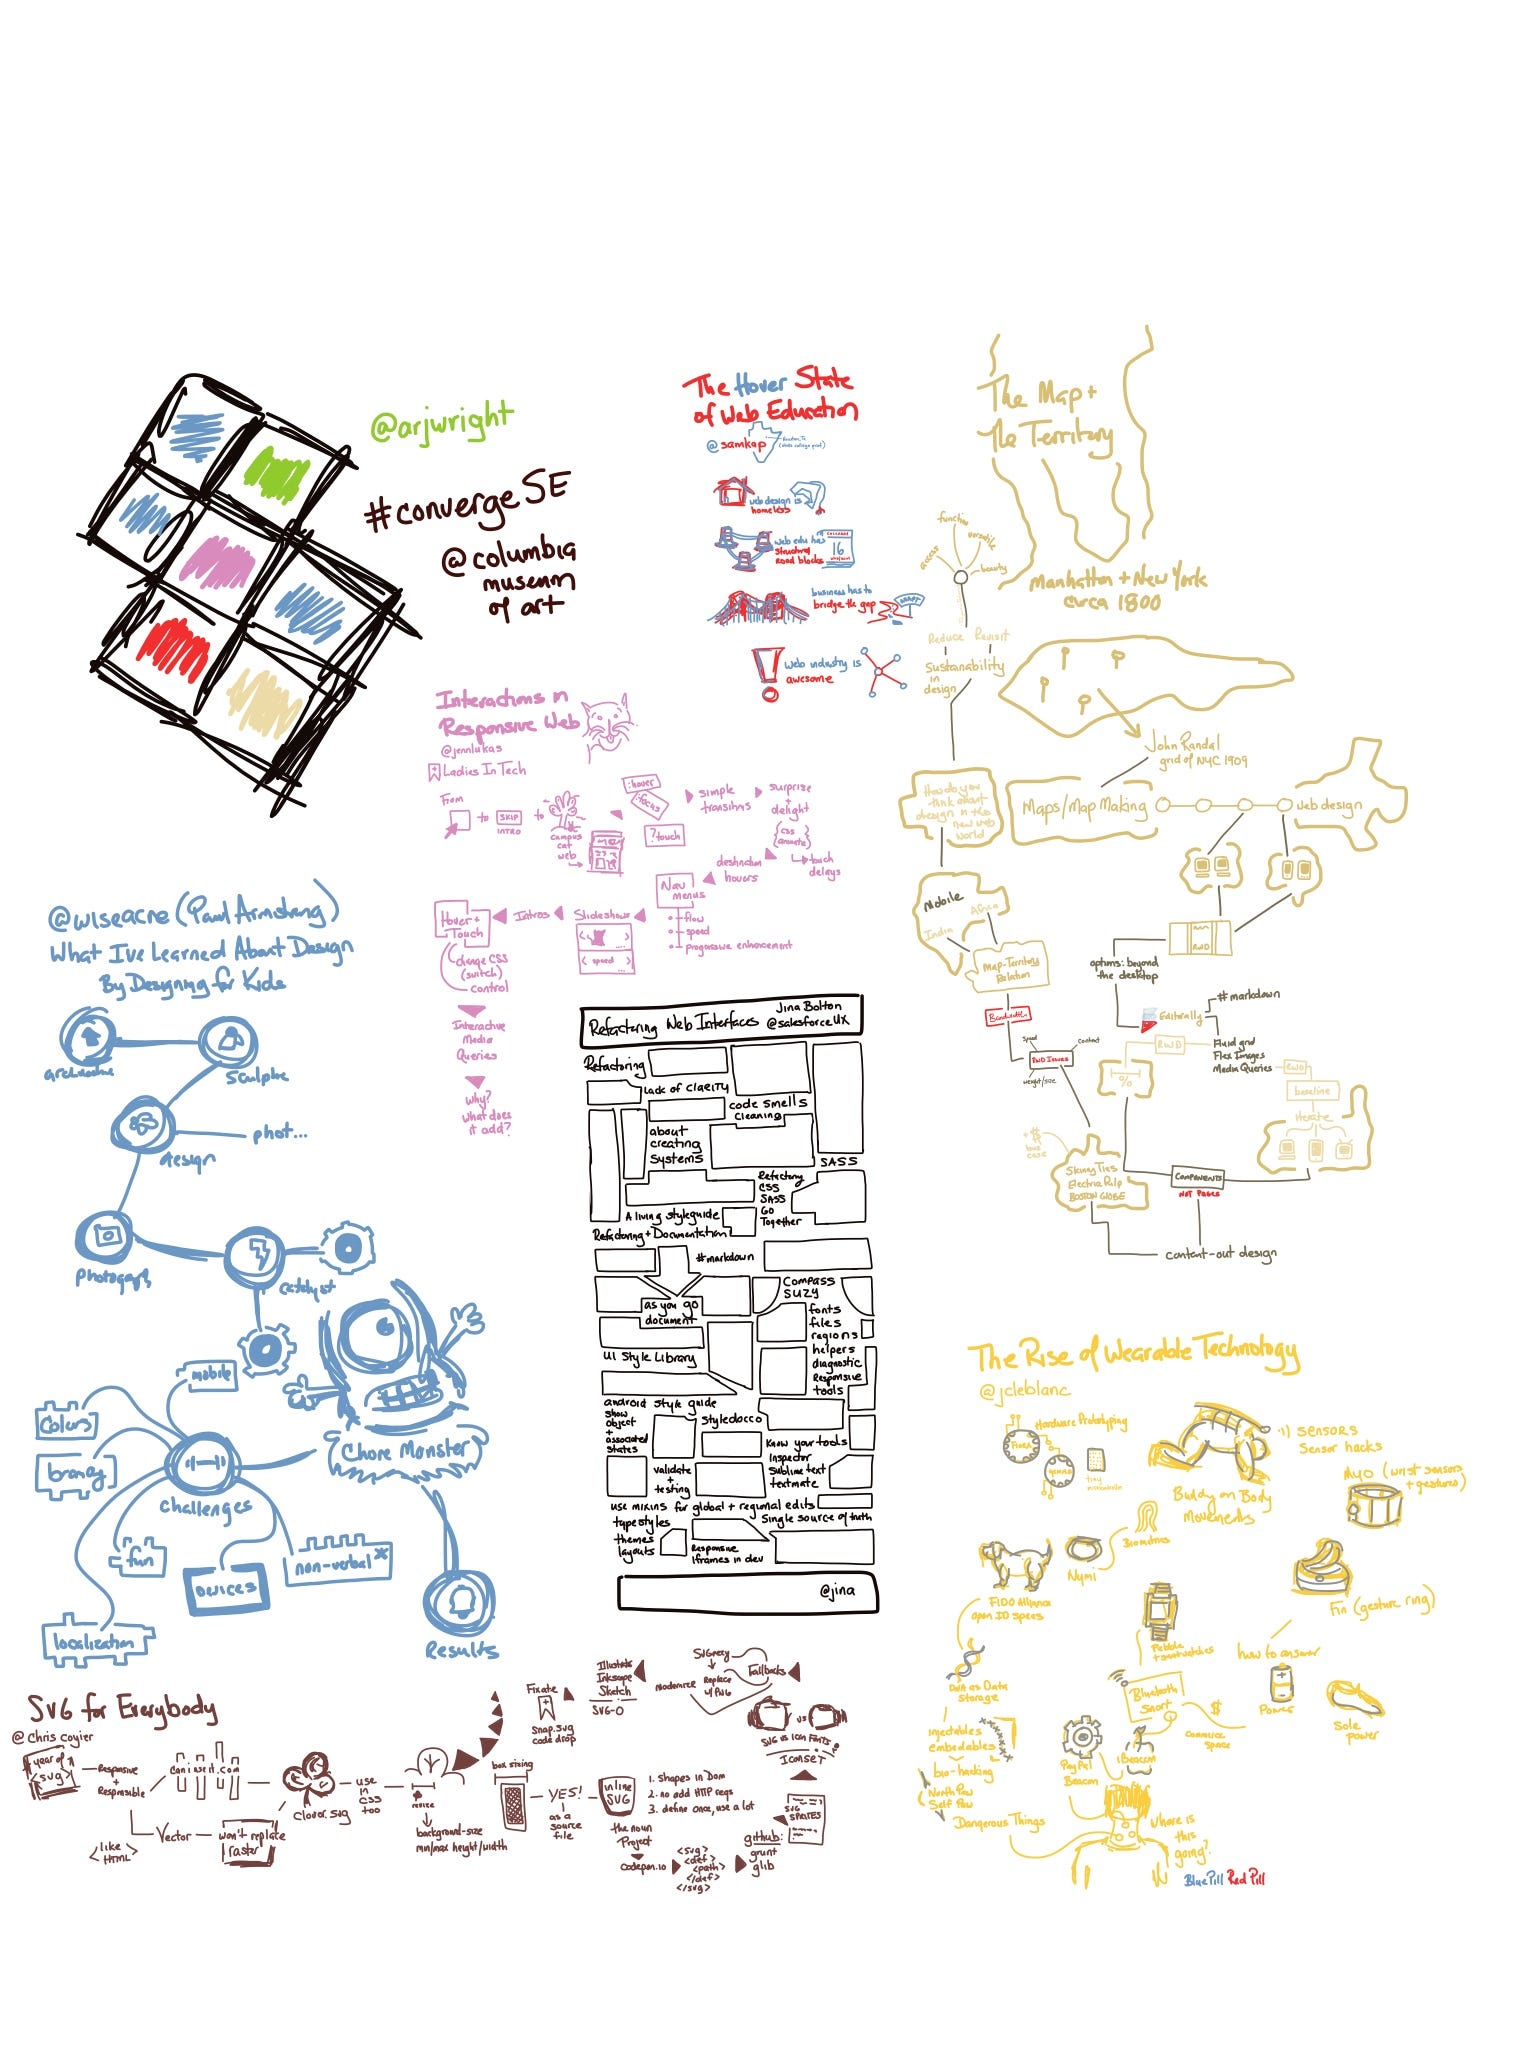 @arjwright
#convergeSE
@columbia
museum
of art
The Hover State
of Web Education
@samkap
web design is
homeless
web edu has
structural
road blocks
16
business has to
bridge the gap
ADAPT
web industry is
awesome
The Map +
The Territory
Manhattan + New York
circa 1800
function
versatile
access
beauty
Reduce Revisit
Sustanability
in
design
John Randal
grid of NYC 1909
How do you
think about
design in this
new web
world
Maps/Map Making
web design
Mobile
Africa
India
Map-Territory
Relation
RWD
options: beyond
the desktop
#markdown
Editorially
Bandwidth
speed
content
RWD Issues
weight/size
RWD
Fluid grid
Flex Images
Media Queries
RWD
baseline
iterate
%
+ $
bus
case
Skinny Ties
Electric Pulp
BOSTON GLOBE
COMPONENTS
NOT PAGES
content-out design
Interactions in
Responsive Web
@jennlukas
Ladies In Tech
From
to
SKIP
INTRO
to
campus
cat
web
:hover
:focus
?touch
simple
transitions
surprise
+
delight
(css
animate)
touch
delays
destination
hovers
Nav
menus
flow
speed
progressive enhancement
Slideshows
< speed >
Intros
Hover +
Touch
change CSS
(switch)
control
Interactive
Media
Queries
why?
what does
it add?
@wiseacre (Paul Armstrong)
What I've Learned About Design
By Designing for Kids
architecture
sculpture
design
phot...
photography
catalyst
mobile
Colors
brandy
challenges
fun
DEVICES
non-verbal*
localization
(Chore Monster)
Results
Refactoring Web Interfaces
Jina Bolton
@salesforceUX
Refactoring
Lack of CLARITY
code smells
cleaning
about
creating
systems
SASS
Refactory
CSS
SASS
GO
Together
A living styleguide
Refactoring + Documentation
#markdown
as you go
document
COMPASS
SUZY
fonts
files
regions
helpers
diagnostic
Responsive
tools
UI Style Library
android style guide
show
object
+
associated
states
styledocco
Know your tools
Inspector
Sublime text
textmate
validate
+
testing
use mixins for global + regional edits
Single source of truth
typestyles
themes
layouts
Responsive
Iframes in dev
@jina
The Rise of Wearable Technology
@jcleblanc
Hardware Prototyping
FLORA
GEMMA
tiny
Sensors
Sensor hacks
Buddy on Body
Movements
MYO (wrist sensors
+ gestures)
Biometrics
Nymi
FIDO Alliance
open ID specs
Fin (gesture ring)
Pebble
+ smartwatches
how to answer
Power
Sole
power
DNA as Data
Storage
Bluetooth
Smart
$
Commerce
space
injectables
embedables
bio-hacking
North Paw
Self Paw
Dangerous Things
PayPal
Beacon
iBeacon
Where is
this
going?
Blue Pill Red Pill
SVG for Everybody
@ Chris coyier
year of
<svg>
Responsive
+
Responsible
caniuse.com
Vector
won't replace
raster
<like
HTML>
Clover.svg
use
in
CSS
too
resize
background-size
min/max height/width
box sizing
YES!
as a
source
file
Fixate
Snap.svg
code drop
Illustrator
Inkscape
Sketch
SVG-O
modernizr
SVGeezy
Replace
w/PNG
Fallbacks
vs
SVG vs Icon Fonts
ICONSET
inline
SVG
1. Shapes in Dom
2. no add HTTP reqs
3. define once, use a lot
the noun
Project
codepen.io
<svg>
<def>
<path>
</def>
</svg>
github:
grunt
glib
SVG
SPRITES